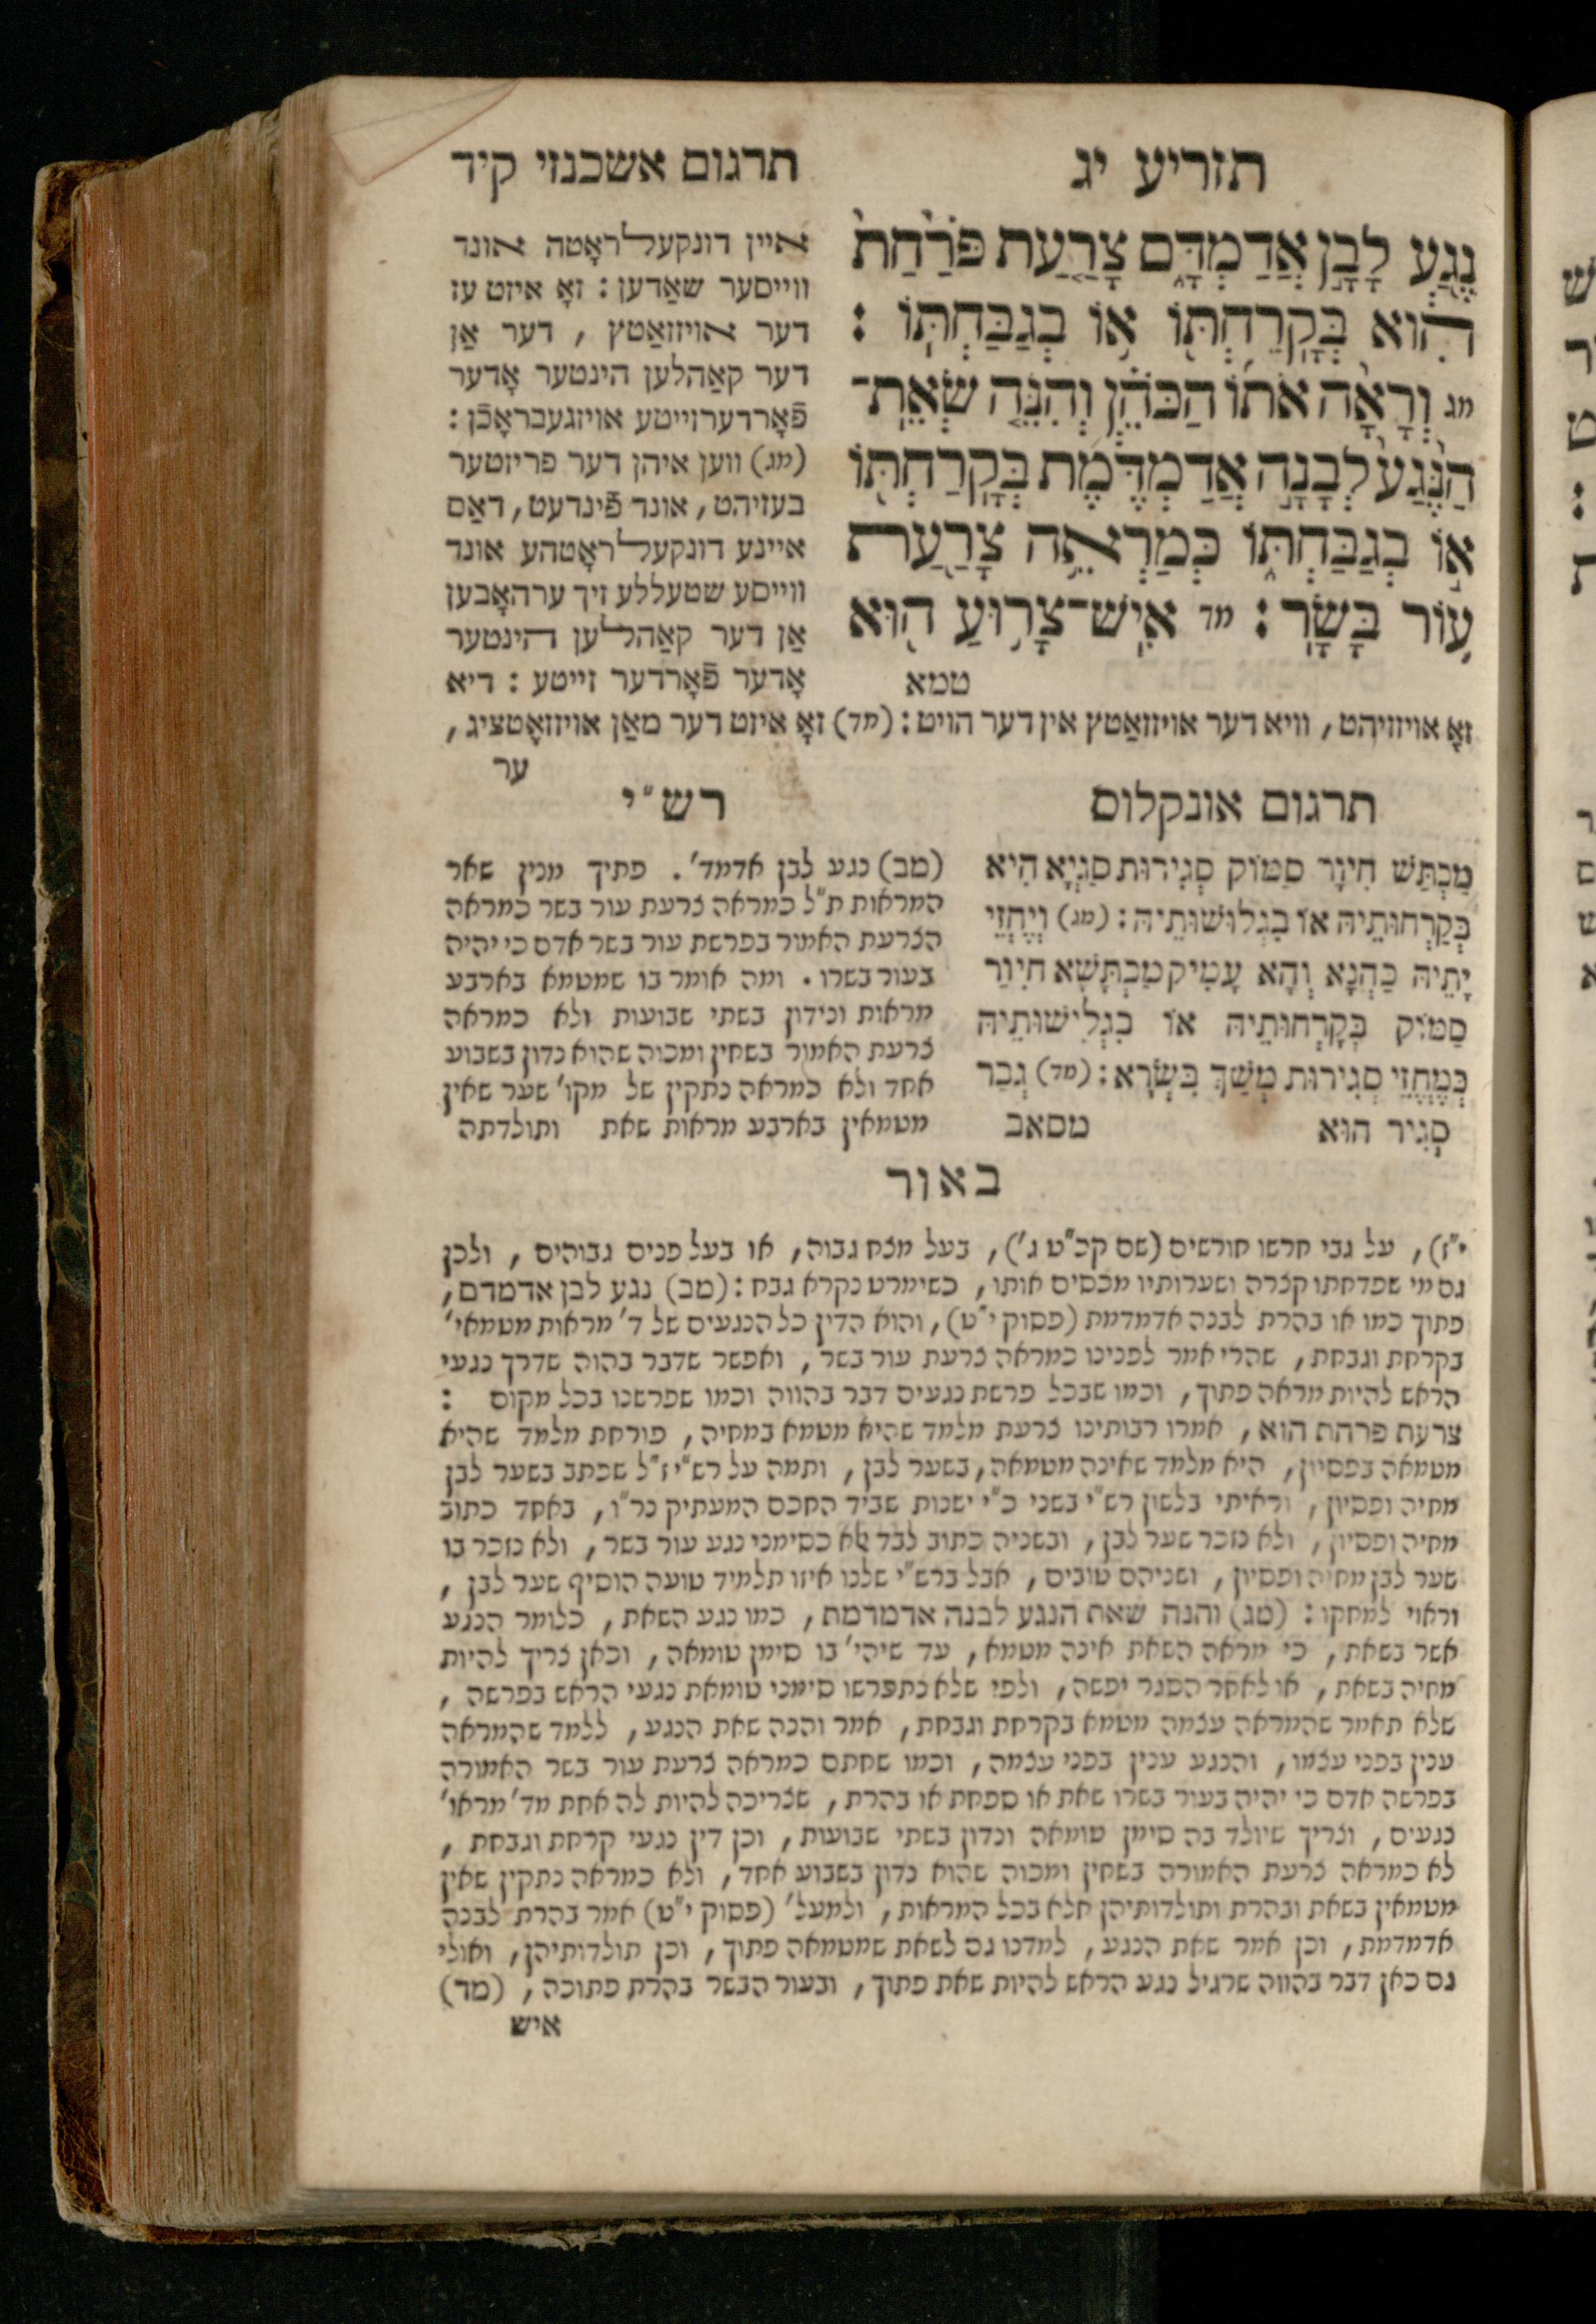 תזריע יג
תרגום אשכנזי קיד
נֶ֚גַע לָבָ֣ן אֲדַמְדָּ֔ם צָרַ֤עַת פֹּרַ֙חַת֙
הִ֔וא בְּקָרַחְתּ֖וֹ א֥וֹ בְגַבַּחְתּֽוֹ :
מג וְרָאָ֨ה אֹת֜וֹ הַכֹּהֵ֗ן וְהִנֵּ֤ה שְׂאֵת־
הַנֶּ֙גַע֙ לְבָנָ֣ה אֲדַמְדֶּ֔מֶת בְּקָרַחְתּ֖וֹ
א֣וֹ בְגַבַּחְתּ֑וֹ כְּמַרְאֵ֥ה צָרַ֖עַת
ע֥וֹר בָּשָֽׂר : מד אִישׁ־צָר֥וּעַ ה֖וּא
טמא
איין דונקעלראָטה אונד
ווייסער שאַדען : זאָ איזט עז
דער אויזזאַטץ , דער אַן
דער קאַהלען הינטער אָדער
פֿאָרדערזייטע אויזגעבראָכֿן :
(מג) ווען איהן דער פריזטער
בעזיהט, אונד פֿינדעט, דאַס
איינע דונקעלראָטהע אונד
ווייסע שטעללע זיך ערהאָבען
אַן דער קאַהלען הינטער
אָדער פֿאָרדער זייטע : דיא
זאָ אויזזיהט, וויא דער אויזזאַטץ אין דער הויט : (מד) זאָ איזט דער מאַן אויזזאָטציג,
ער
תרגום אונקלוס
מַכְתַּשׁ חִיוָר סַמּוֹק סְגִירוּת סַגְיָא הִיא
בְּקַרְחוּתֵיהּ אוֹ בִגְלוּשׁוּתֵיהּ : (מג) וְיֶחֱזֵי
יָתֵיהּ כַּהֲנָא וְהָא עָמִיק מַכְתָּשָׁא חִיוַר
סַמּוֹק בְּקַרְחוּתֵיהּ אוֹ בִגְלִישׁוּתֵיהּ
כְּמֶחֱזֵי סְגִירוּת מְשַׁךְ בִּשְׂרָא : (מד) גְבַר
סְגִיר הוּא מסאב
רש"י
(מב) נגע לבן אדמד'. פתוך מנין שאר
המראות ת"ל כמראה צרעת עור בשר כמראה
הצרעת האמור בפרשת עור בשר אדם כי יהיה
בעור בשרו. ומה אומר בו שמטמא בארבע
מראות ונידון בשתי שבועות ולא כמראה
צרעת האמור בשחין ומכוה שהוא נדון בשבוע
אחד ולא כמראה נתקין של מקו' שער שאין
מטמאין בארבע מראות שאת ותולדתה
באור
י"ז), על גבי חרשו חורשים (שם קכ"ט ג'), בעל מצח גבוה, או בעל פנים גבוהים, ולכן
גם מי שפדחתו קצרה ושערותיו מכסים אותו, כשימרט נקרא גבח : (מב) נגע לבן אדמדם,
פתוך כמו או בהרת לבנה אדמדמת (פסוק י"ט), והוא הדין כל הנגעים של ד' מראות מטמאי'
בקרחת וגבחת, שהרי אמר לפנינו כמראה צרעת עור בשר, ואפשר שדבר בהוה שדרך נגעי
הראש להיות מראה פתוך, וכמו שבכל פרשת נגעים דבר בהווה וכמו שפרשנו בכל מקום :
צרעת פרחת הוא, אמרו רבותינו צרעת מלמד שהיא מטמא במחיה, פורחת מלמד שהיא
מטמאה בפסיון, היא מלמד שאינה מטמאה, בשער לבן, ותמה על רש"י ז"ל שכתב בשער לבן
מחיה ופסיון, וראיתי בלשון רש"י בשני כ"י ישנות שביד החכם המעתיק נר"ו, באחד כתוב
מחיה ופסיון, ולא נזכר שער לבן, ובשניה כתוב לבד לא כסימני נגע עור בשר, ולא נזכר בו
שער לבן מחיה ופסיון, ושניהם טובים, אבל ברש"י שלנו איזו תלמיד טועה הוסיף שער לבן,
וראוי למחקו : (מג) והנה שאת הנגע לבנה אדמדמת, כמו נגע השאת, כלומר הנגע
אשר בשאת, כי מראה השאת אינה מטמא, עד שיהי' בו סימן טומאה, וכאן צריך להיות
מחיה בשאת, או לאחר הסגר יפשה, ולפי שלא נתפרשו סימני טומאת נגעי הראש בפרשה,
שלא תאמר שהמראה עצמה מטמא בקרחת וגבחת, אמר והנה שאת הנגע, ללמד שהמראה
ענין בפני עצמו, והנגע ענין בפני עצמה, וכמו שחתם כמראה צרעת עור בשר האמורה
בפרשה אדם כי יהיה בעור בשרו שאת או ספחת או בהרת, שצריכה להיות לה אחת מד' מראו'
נגעים, וצריך שיולד בה סימן טומאה ונדון בשתי שבועות, וכן דין נגעי קרחת וגבחת,
לא כמראה צרעת האמורה בשחין ומכוה שהוא נדון בשבוע אחד, ולא כמראה נתקין שאין
מטמאין בשאת ובהרת ותולדותיהן אלא בכל המראות, ולמעל' (פסוק י"ט) אמר בהרת לבנה
אדמדמת, וכן אמר שאת הנגע, למדנו גם לשאת שמטמאה פתוך, וכן תולדותיהן, ואולי
גם כאן דבר בהווה שרגיל נגע הראש להיות שאת פתוך, ובעור הבשר בהרת פתוכה, (מד)
איש